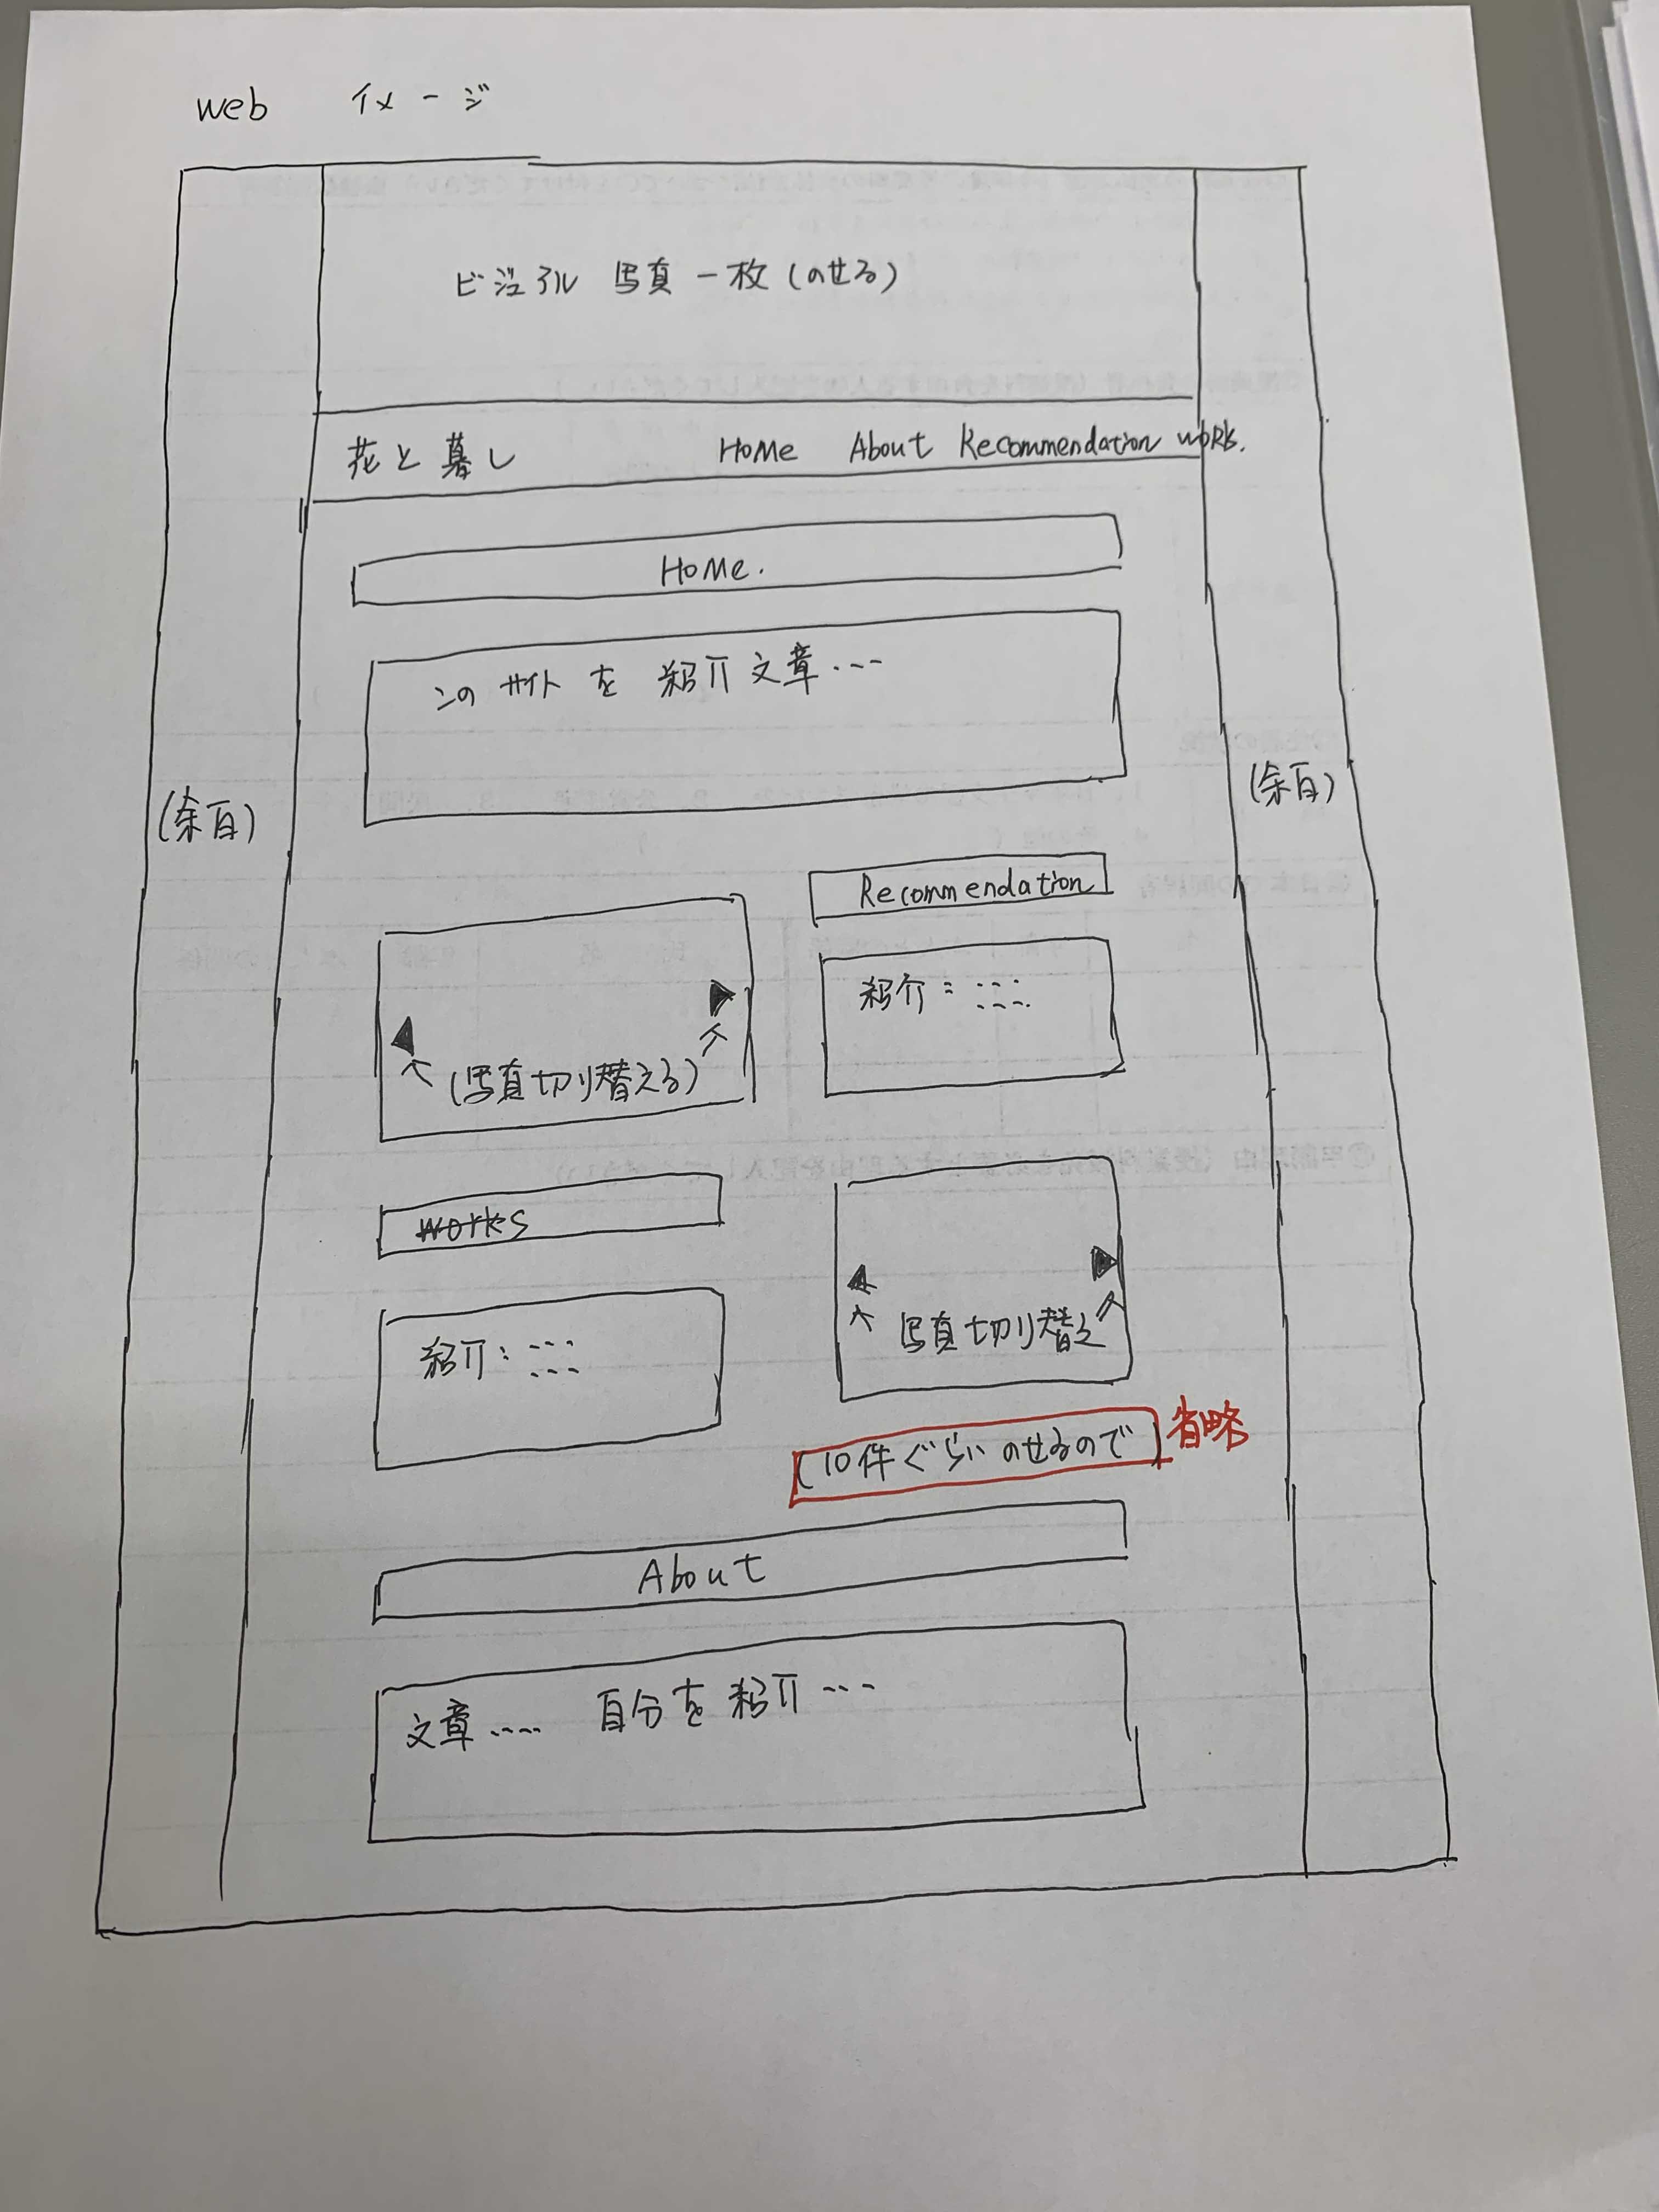 web イメージ
ビジュアル 写真 一枚 (のせる)
花と暮し HOMe About Recommendation woRk.
HOMe.
この サイト を 紹介 文章・・・
(余白)
(余白)
Recommendation
紹介:
(写真切り替える)
works
紹介:
写真切り替え
(10件ぐらいのせるので) 省略
About
文章..... 自分を紹介・・・